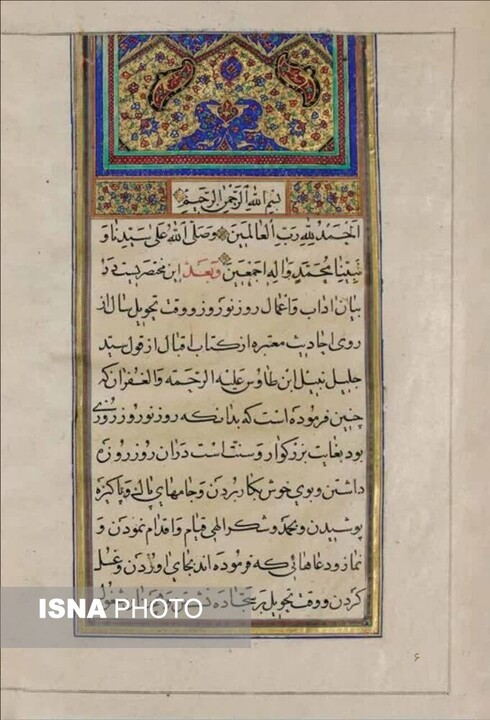 بسم الله الرحمن الرحیم
الحمد لله رب العالمین وصلی الله علی سیدنا و
نبینا محمد واله اجمعین وبعد این مختصریست در
بیان اداب واعمال روز نوروز ووقت تحویل سال از
روی احادیث معتبره از کتاب اقبال از قول سید
جلیل نبیل ابن طاوس علیه الرحمه والغفران که
چنین فرموده است که بدانکه روز نوروز روزی
بود بغایت بزرکوار وسنتاست دران روز روزه
داشتن وبوی خوش بکار بردن وجامهای پاک وپاکیزه
پوشیدن و بحمد وشکر الهی قیام واقدام نمودن و
نماز ودعاهائی که فرموده اند بجای اوردن وغسل
کردن ووقت تحویل بر سجاده
ISNA PHOTO
۶